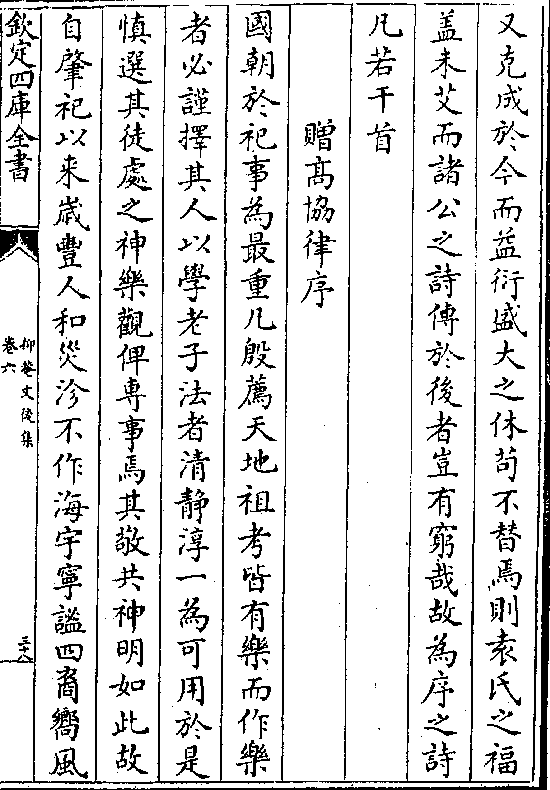 又克成於今而益衍盛大之休苟不替焉則袁氏之福
蓋未艾而諸公之詩傳於後者豈有窮哉故為序之詩
凡若干首
贈高協律序
國朝於祀事為最重凡殷薦天地祖考皆有樂而作樂
者必謹擇其人以學老子法者清靜淳一為可用於是
慎選其徒處之神樂觀俾專事焉其敬共神明如此故
自肇祀以来嵗豐人和災沴不作海宇寧謐四裔嚮風
欽定四庫全書
抑菴文後集
卷六
三十八